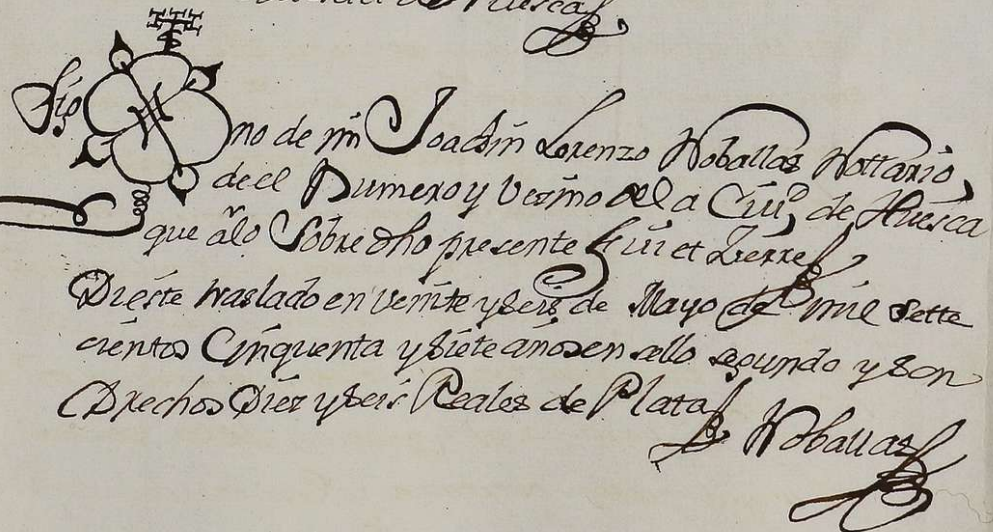 de Huesca
Sig no de mi Joachin Lorenzo Noballas Nottario,
de el Numero y Vezino de la Ciud, de Huesca
que a lo Sobre dho presente fui et Zerre
Di este traslado en veinte y seis de Mayo de mil sette
cientos Cinquenta y siete años en sello segundo y son
Drechos Diez y seis Reales de Plata
Noballas